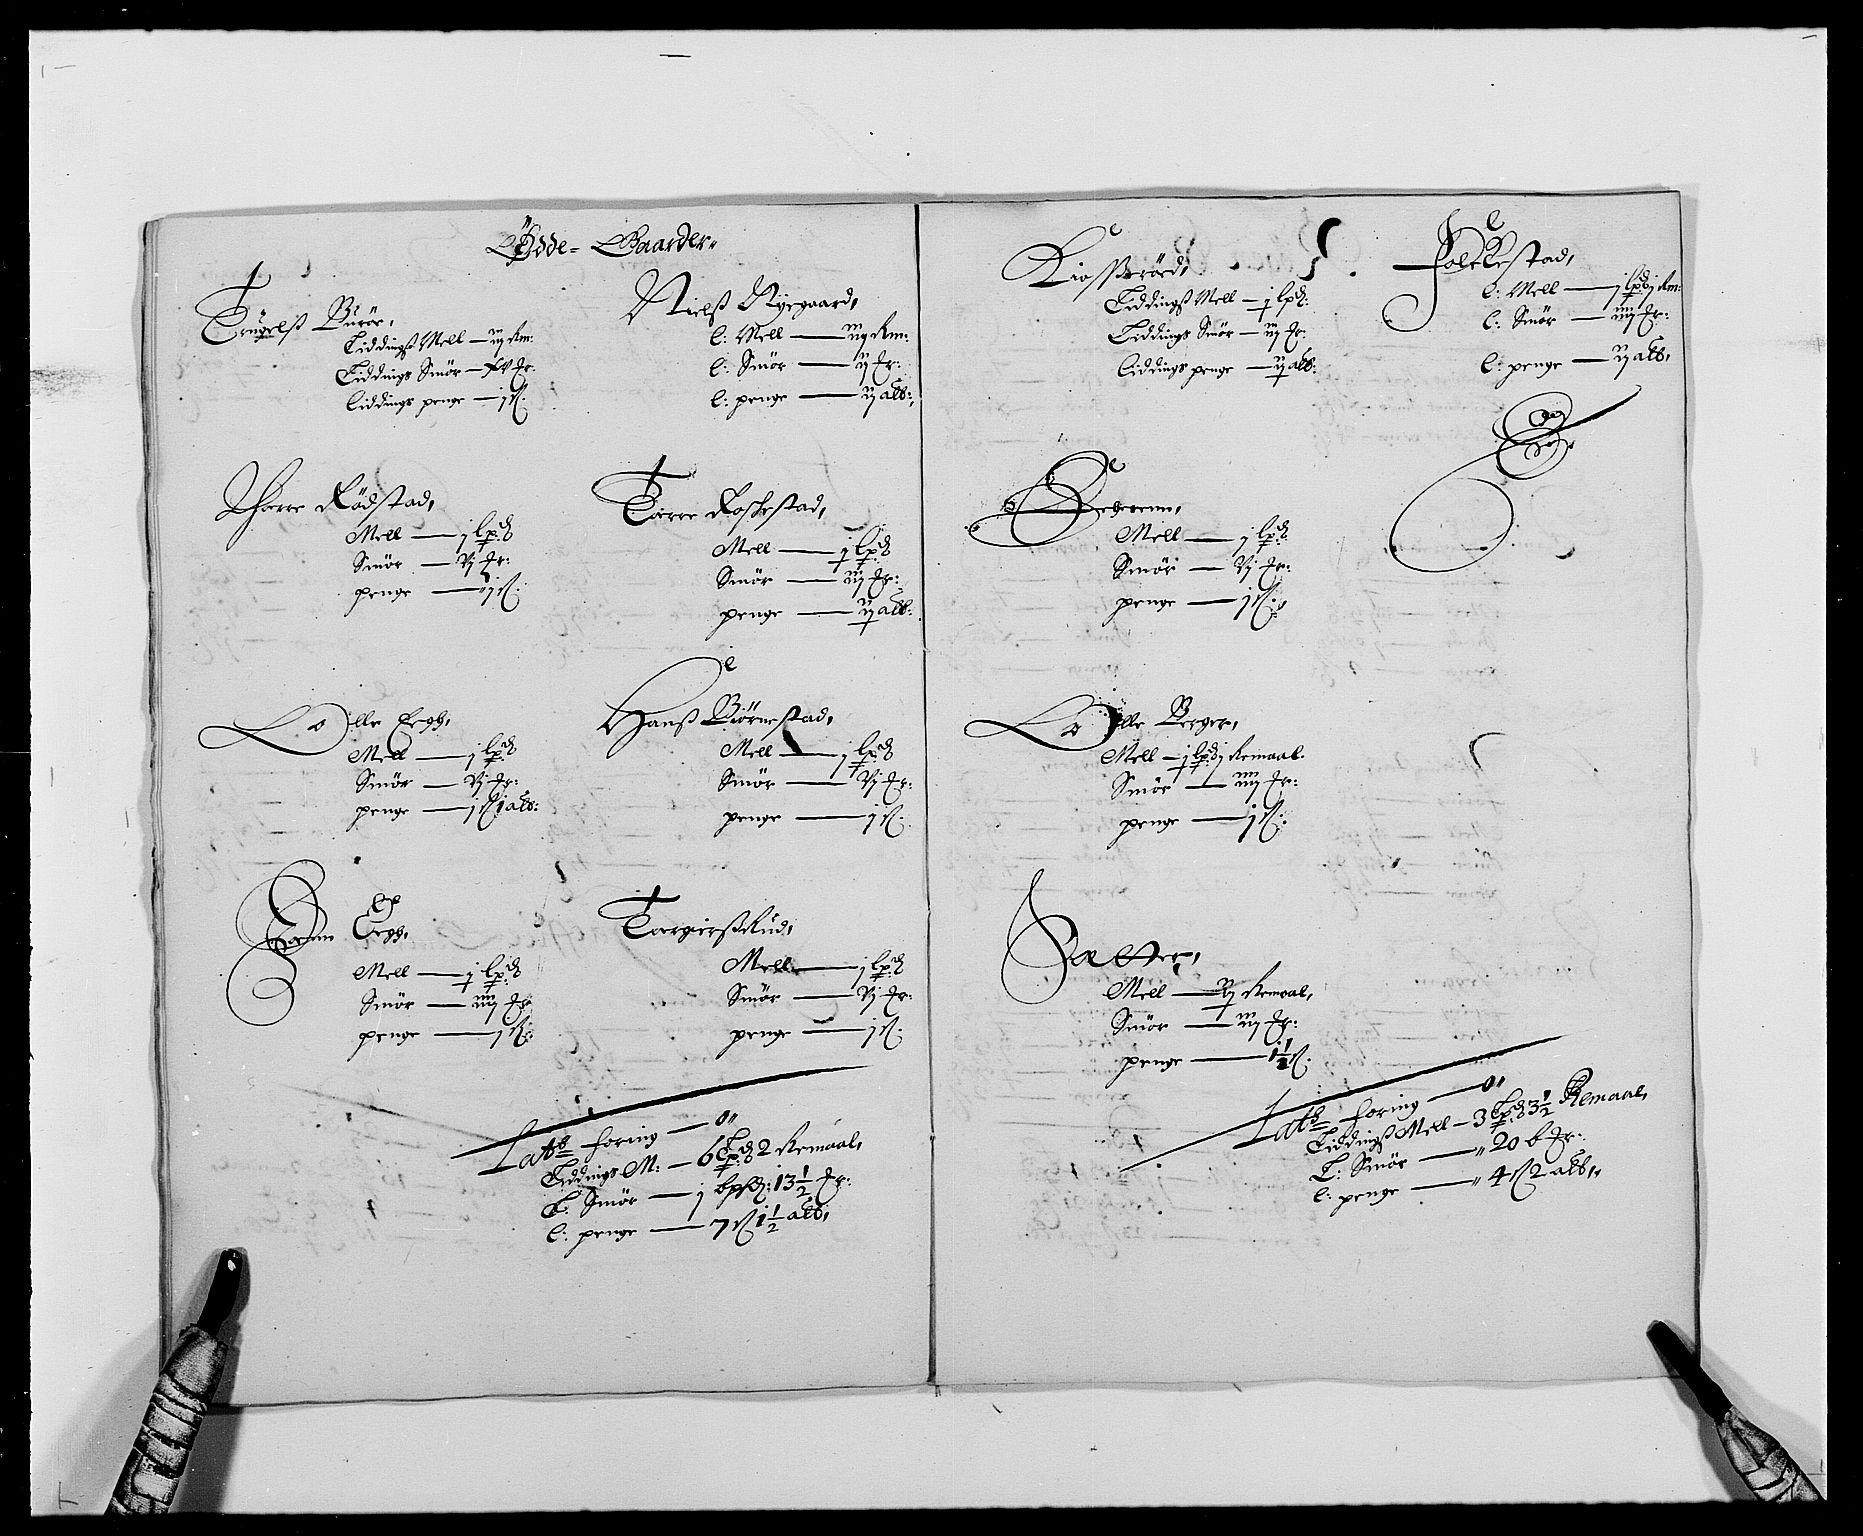 Ødde- Gaarder
Burör,
Liddingß Mell — iij Rm:
Liddings Smör — xv Fr:
Liddings penge — j ß.
Nielß Nyegaard,
l: Mell — iij Rm:
l: Smör — ij Fr:
l: penge — ij alb:
Thorre Rödstad,
Mell — j lpd
Smör — vj Fr:
penge — j ß.
Torre Roskestad,
Mell — j lpd
Smör — iij Fr:
penge — ij alb:
Olle Ergh,
Mell — j lpd
Smör — vj Fr:
penge — j ß j alb:
Hanß Biörnestad,
Mell — j lpd
Smör — vj Fr:
penge — j ß.
Ergh,
Mell — j lpd
Smör — iiij Fr
penge — j ß.
Torgierß Rud,
Mell — j lpd
Smör — vj Fr:
penge — j ß.
Lats foring — 0"
Liddings M: — 6 Lpd 2 Remaal,
L: Smör — j bpd: 13 1/2 Fr:
l: penge — 7 ß 1 1/2 alb,
Kioßeröd,
Liddingß Mell — j lpd:
Liddings Smör — iij Fr:
Liddings penge — ij alb:
Folkestad,
l: Mell — j lpd j Rm:
l: Smör — iiij Fr:
l: penge — ij alb,
Mell — j lpd
Smör — vj Fr:
penge — j ß.
Olle Berger,
Mell — j lpd j Remaal.
Smör — iiij Fr:
penge — j ß.
Mell — ij Remaal,
Smör — iij Fr:
penge — 1 1/2 ß.
Lats foring — 0"
Liddingß Mell — 3 Lpd 3 1/2 Remaal,
L: Smör — " 20 b Fr:
l: penge — " 4 ß 2 alb,